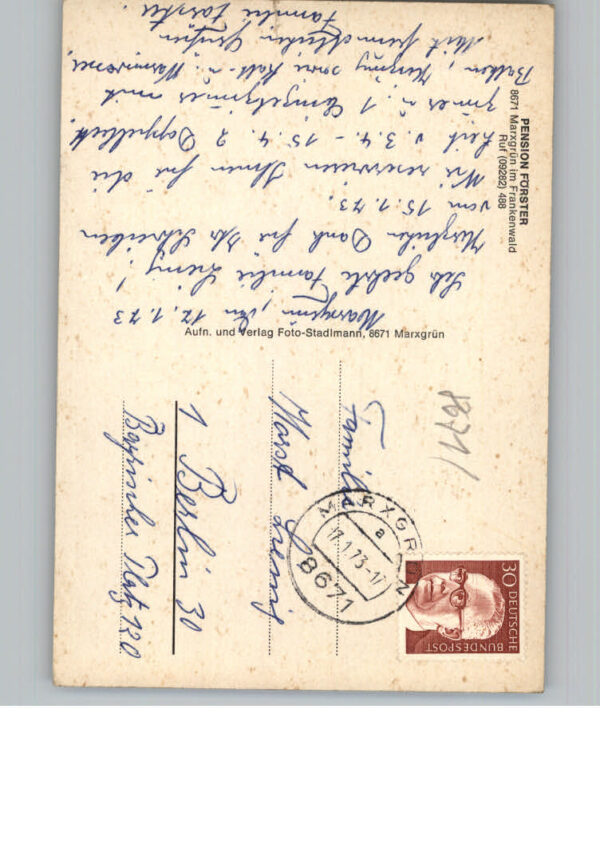 PENSION FÖRSTER
8671 Marxgrün im Frankenwald
Ruf (09282) 488
Marxgrün, den 17.1.73
Sehr geehrte Familie
Herzlichen Dank für Ihr Schreiben
vom 15.1.73.
Wir reservieren Ihnen für die
Zeit v. 3.4. - 15.4. 2 Doppelbett
zimmer u. 1 Einzelzimmer mit
Balkon, Heizung sowie Kalt- u. Warmwasser.
Mit freundlichen Grüßen
Familie Förster.
Aufn. und Verlag Foto-Stadlmann, 8671 Marxgrün
Familie
Horst
1 Berlin 30
Bayrischer Platz 120
8671
MARXGRÜN
a
17.1.73-17
8671
30 DEUTSCHE
BUNDESPOST